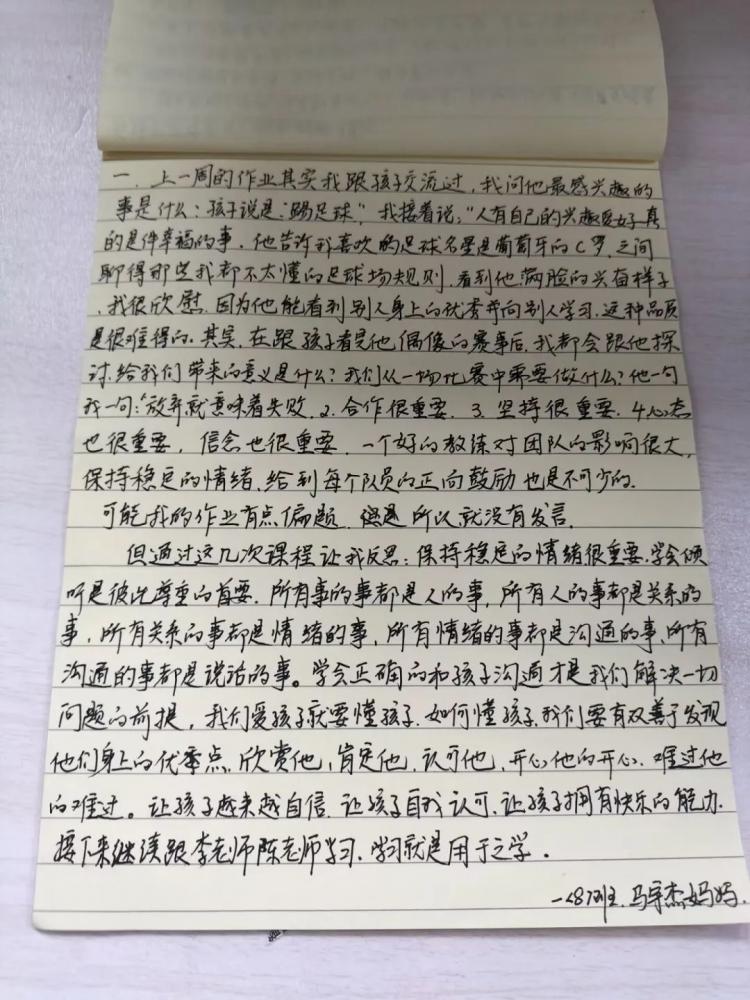 一、上一周的作业其实我跟孩子交流过，我问他最感兴趣的
事是什么：孩子说是："踢足球"，我接着说："人有自己的兴趣爱好真
的是件幸福的事，他告诉我喜欢的足球名星是葡萄牙的C罗，之间
聊得那些我都不太懂的足球场规则，看到他满脸的兴奋样子
，我很欣慰，因为他能看到别人身上的优秀并向别人学习，这种品质
是很难得的。其实，在跟孩子看完他偶像的赛事后，我都会跟他探
讨：给我们带来的意义是什么？我们从一场比赛中需要做什么？他一句
我一句："放弃就意味着失败，2.合作很重要，3.坚持很重要，4心态
也很重要，信念也很重要，一个好的教练对团队的影响很大，
保持稳定的情绪，给到每个队员的正向鼓励也是不可少的.
可能我的作业有点偏题，所以就没有发言，
但通过这几次课程让我反思：保持稳定的情绪很重要，学会倾
听是彼此尊重的首要，所有事的事都是人的事，所有人的事都是关系的
事，所有关系的事都是情绪的事，所有情绪的事都是沟通的事，所有
沟通的事都是说话的事。学会正确的和孩子沟通才是我们解决一切
问题的前提，我们爱孩子就要懂孩子，如何懂孩子，我们要有双善于发现
他们身上的优秀点，欣赏他，肯定他，认可他，开心他的开心，难过他
的难过。让孩子越来越自信，让孩子自我认可，让孩子拥有快乐的能力.
接下来继续跟李老师陈老师学习，学习就是用于之学。
一〈8〉班 马宇杰妈妈.